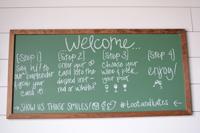 Welcome...
{Step 1} {Step 2} {Step 3} {Step 4}
Say hi! to our bartender & grab your card
Insert your card into the desired unit - red or white?
Choose your wine & pick your pour
enjoy!
→ SHOW US THOSE SMILES